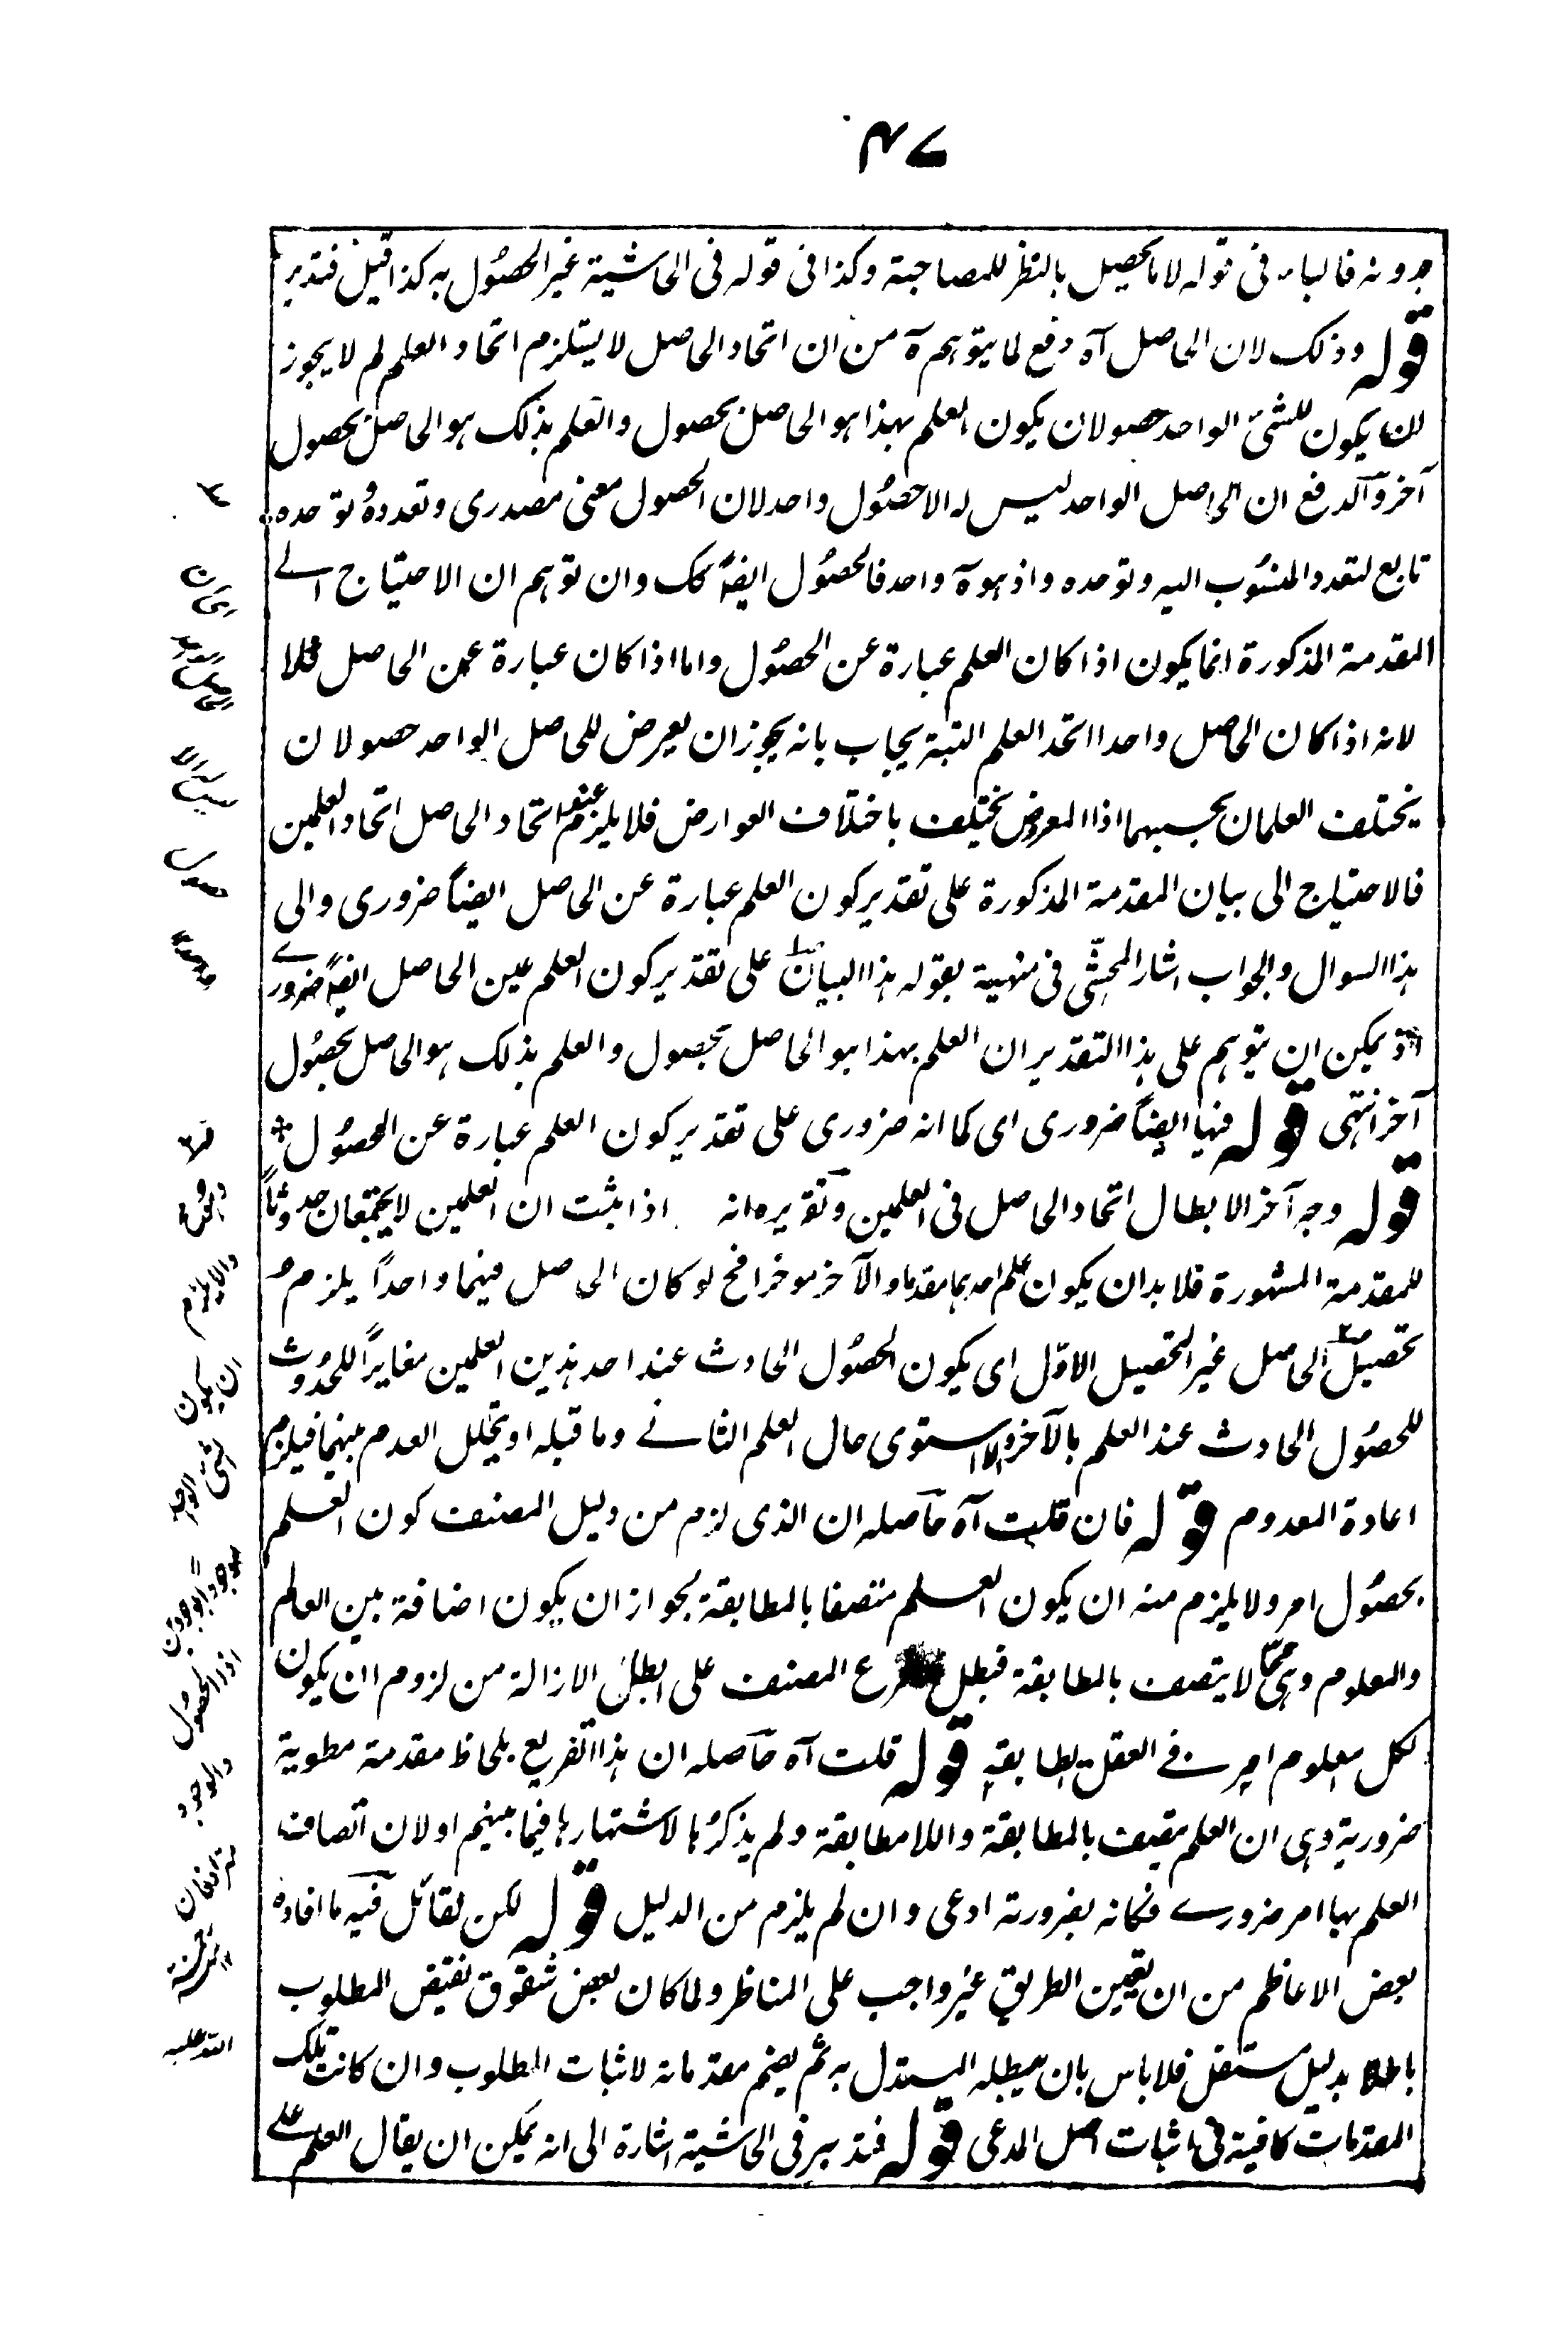 ٤٧
بدونه فالباء فى قوله لا ما يحصل بالنظر للمصاحبة وكذا فى قوله فى الحاشية غير الحصول به كذا قيل فتدبر
قوله وذلك لان الحاصل آه دفع لما يتوهم ه من ان اتحاد الحاصل لا يستلزم اتحاد العلم لم لا يجوز
ان يكون للشئ الواحد حصولان يكون العلم بهذا هو الحاصل بحصول والعلم بذلك هو الحاصل بحصول
آخر والدفع ان الحاصل الواحد ليس له الا حصول واحد لان الحصول معنى مصدرى وتعدده وتوحده
تابع لتعدد المنسوب اليه وتوحده واذ هو ه واحد فالحصول ايضا كك وان توهم ان الاحتياج الے
المقدمة المذكورة انما يكون اذا كان العلم عبارة عن الحصول واما اذا كان عبارة عن الحاصل فلا
لانه اذا كان الحاصل واحدا اتحد العلم البتة يجاب بانه يجوز ان يعرض للحاصل الواحد حصولان
يختلف العلمان بحسبهما اذ المعروض يختلف باختلاف العوارض فلا يلزم عنده اتحاد الحاصل اتحاد العلمين
فالاحتياج الى بيان المقدمة المذكورة على تقدير كون العلم عبارة عن الحاصل ايضاً ضرورى والى
هذا السوال والجواب اشار المحشّى فى منهية بقوله هذا البيان على تقدير كون العلم عين الحاصل ايضاً ضرورے
اذ يمكن ان يتوهم على هذا التقدير ان العلم بهذا هو الحاصل بحصول والعلم بذلك هو الحاصل بحصول
آخر انتهى قوله فيها ايضاً ضرورى اى كما انه ضرورى على تقدير كون العلم عبارة عن الحصول
قوله وجه آخر الابطال اتحاد الحاصل فى العلمين وتقريره انه اذا ثبت ان العلمين لا يجتمعان حدوثاً
للمقدمة المشهورة فلا بد ان يكون علم احدهما مقدما والآخر موخرا فح لو كان الحاصل فيهما واحداً يلزم
تحصيل الحاصل غير التحصيل الاوّل اى يكون الحصول الحادث عند احد هذين العلمين مغايراً للحدوث
للحصول الحادث عند العلم بالآخر والا استوى حال العلم الثانے وما قبله او تخلل العدم بينهما فيلزم
اعادة المعدوم قوله فان قلت آه حاصله ان الذى لزم من دليل المصنف كون العلم
بحصول امر ولا يلزم منه ان يكون العلم متصفا بالمطابقة لجواز ان يكون اضافة بين العالم
والمعلوم وهى مما لا يتصف بالمطابقة فبطل المصنف على ابطال الازالة من لزوم ان يكون
لكل معلوم امر فے العقل يطابقه قوله قلت آه حاصله ان هذا التفريع بلحاظ مقدمة مطوية
ضرورية وهى ان العلم يتصف بالمطابقة واللامطابقة ولم يذكرها لاشتهارها فيما بينهم او لان اتصاف
العلم بها امر ضرورے فكانه بضرورته ادعى وان لم يلزم من الدليل قوله لكن لقائل فيه ما افاده
بعض الاعاظم من ان تعيين الطريق غير واجب على المناظر ولما كان بعض شقوق نقيض المطلوب
باطلا بدليل مستقل فلا باس بان يبطله المستدل به ثم يضم مقدماته لاثبات المطلوب وان كانت تلك
المقدمات كافية فى اثبات اصل المدعى قوله فتدبر فى الحاشية اشارة الى انه يمكن ان يقال العلم علے
والا يلزم
ان يكون
الشئ الواحد
موجودا بوجودين
اذ الحصول
والوجود
مترادفان